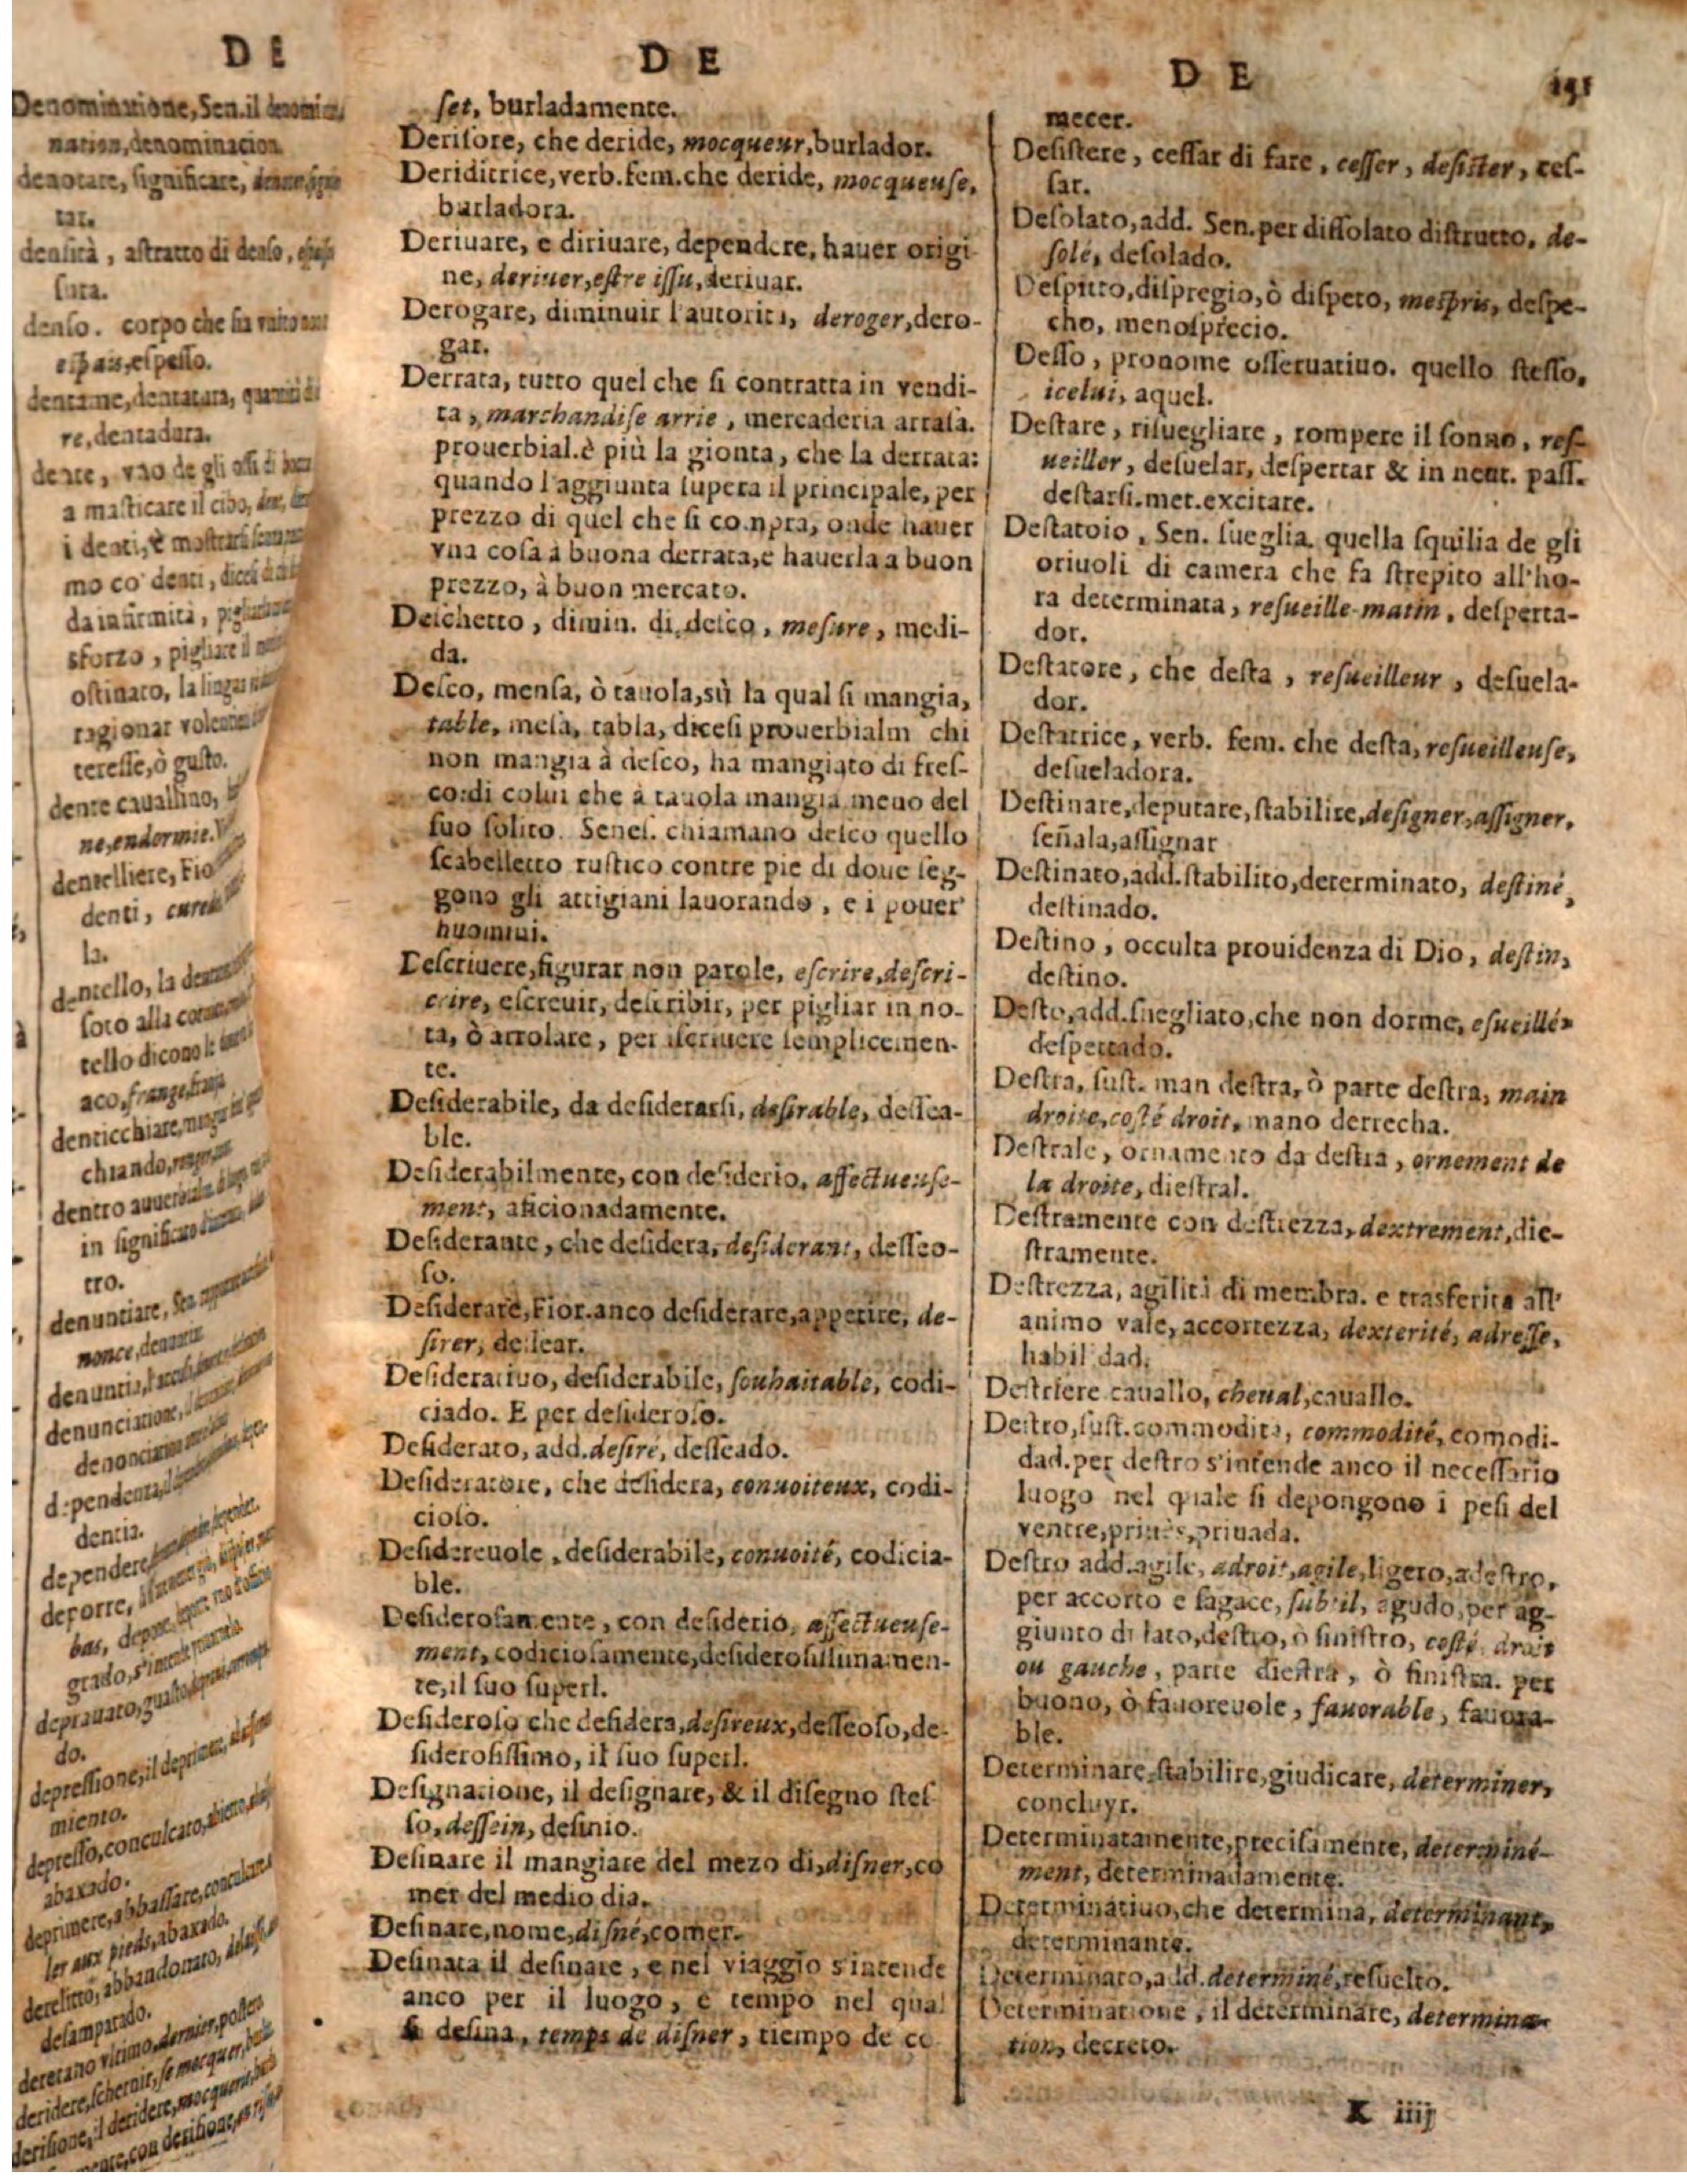 D E
Denominatione, Sen. il
denominacion
denotare, significare,
tar.
densità, astratto di denso,
sura.
denso. corpo che sia
espais, espesso.
dentame, dentatura,
re, dentadura.
dente, vno de gli ossi di
a masticare il cibo,
i denti, è mostrarsi
mo co' denti, dicesi
da infirmità,
sforzo, pigliare il
ostinato, la lingua
ragionar volentieri
teresse, ò gusto.
dente cauallino,
ne, endormie.
dentelliere, Fio
denti, cure
la.
dentello, la
soto alla
tello dicono le
aco, frange,
denticchiare,
chiando,
dentro
in significato
tro.
denuntiare, Sen.
nonce,
denuntia,
denunciatione,
denonciation
dependenza,
dentia.
dependere,
deporre,
bas, depose,
grado, s'intende
deprauato, guasto,
do.
depressione, il deprimere,
miento.
depresso, conculcato,
abaxado.
deprimere, abbassare,
ler aux pieds, abaxado.
derelitto, abbandonato,
desamparado.
deretano vltimo, dernier,
deridere, schernir, se mocquer,
derisione, il deridere,
con derisione,
D E
set, burladamente.
Derisore, che deride, mocqueur, burlador.
Deriditrice, verb. fem. che deride, mocqueuse,
burladora.
Deriuare, e diriuare, dependere, hauer origi
ne, deriuer, estre issu, deriuar.
Derogare, diminuir l'autorità, deroger, dero-
gar.
Derrata, tutto quel che si contratta in vendi-
ta, marchandise arrie, mercaderia arrasa.
prouerbial. è più la gionta, che la derrata:
quando l'aggiunta supera il principale, per
prezzo di quel che si compra, onde hauer
vna cosa à buona derrata, e hauerla a buon
prezzo, à buon mercato.
Deschetto, dimin. di desco, mesure, medi-
da.
Desco, mensa, ò tauola, sù la qual si mangia,
table, mesa, tabla, dicesi prouerbialm chi
non mangia à desco, ha mangiato di fres-
co: di colui che à tauola mangia meno del
suo solito. Senes. chiamano desco quello
scabelletto rustico con tre pie di doue seg-
gono gli artigiani lauorando, e i pouer'
huomini.
Descriuere, figurar non parole, escrire, descri-
crire, escreuir, describir, per pigliar in no-
ta, ò arrolare, per iscriuere semplicemen-
te.
Desiderabile, da desiderarsi, desirable, dessea-
ble.
Desiderabilmente, con desiderio, affectueuse-
ment, aficionadamente.
Desiderante, che desidera, desiderant, desseo-
so.
Desiderare, Fior. anco desiderare, appetire, de-
sirer, dessear.
Desideratiuo, desiderabile, souhaitable, codi-
ciado. E per desideroso.
Desiderato, add. desiré, desseado.
Desideratore, che desidera, conuoiteux, codi-
cioso.
Desidereuole, desiderabile, conuoité, codicia-
ble.
Desiderosamente, con desiderio, affectueuse-
ment, codiciosamente, desiderosissimamen-
te, il suo superl.
Desideroso che desidera, desireux, desseoso, de-
siderosissimo, il suo superl.
Designatione, il designare, & il disegno stes
so, dessein, desinio.
Desinare il mangiare del mezo di, disner, co
mer del medio dia.
Desinare, nome, disné, comer.
Desinata il desinare, e nel viaggio s'intende
anco per il luogo, e tempo nel qual
si desina, temps de disner, tiempo de co
D E 151
mecer.
Desistere, cessar di fare, cesser, desister, ces-
sar.
Desolato, add. Sen. per dissolato distrutto, de-
solé, desolado.
Despitto, dispregio, ò dispeto, mespris, despe-
cho, menosprecio.
Desso, pronome osseruatiuo. quello stesso,
icelui, aquel.
Destare, risuegliare, rompere il sonno, res-
ueiller, desuelar, despertar & in neut. pass.
destarsi. met. excitare.
Destatoio, Sen. sueglia. quella squilia de gli
oriuoli di camera che fa strepito all'ho-
ra determinata, resueille-matin, desperta-
dor.
Destatore, che desta, resueilleur, desuela-
dor.
Destatrice, verb. fem. che desta, resueilleuse,
desueladora.
Destinare, deputare, stabilire, designer, assigner,
señala, assignar
Destinato, add. stabilito, determinato, destiné,
destinado.
Destino, occulta prouidenza di Dio, destin,
destino.
Desto, add. suegliato, che non dorme, esueillé,
despertado.
Destra, sust. man destra, ò parte destra, main
droite, costé droit, mano derrecha.
Destrale, ornamento da destra, ornement de
la droite, diestral.
Destramente con destrezza, dextrement, die-
stramente.
Destrezza, agilità di membra. e trasferita all'
animo vale, accortezza, dexterité, adresse,
habilidad.
Destriere cauallo, cheual, cauallo.
Destro, sust. commodità, commodité, comodi-
dad. per destro s'intende anco il necessario
luogo nel quale si depongono i pesi del
ventre, priuès, priuada.
Destro add. agile, adroit, agile, ligero, adestro,
per accorto e sagace, subtil, agudo, per ag-
giunto di lato, destro, ò sinistro, costé droit
ou gauche, parte diestra, ò sinistra. per
buono, ò fauoreuole, fauorable, fauora-
ble.
Determinare, stabilire, giudicare, determiner,
concluyr.
Determinatamente, precisamente, determiné-
ment, determinadamente.
Determinatiuo, che determina, determinant,
determinante.
Determinato, add. determiné, resuelto.
Determinatione, il determinare, determina-
tion, decreto.
K iiij